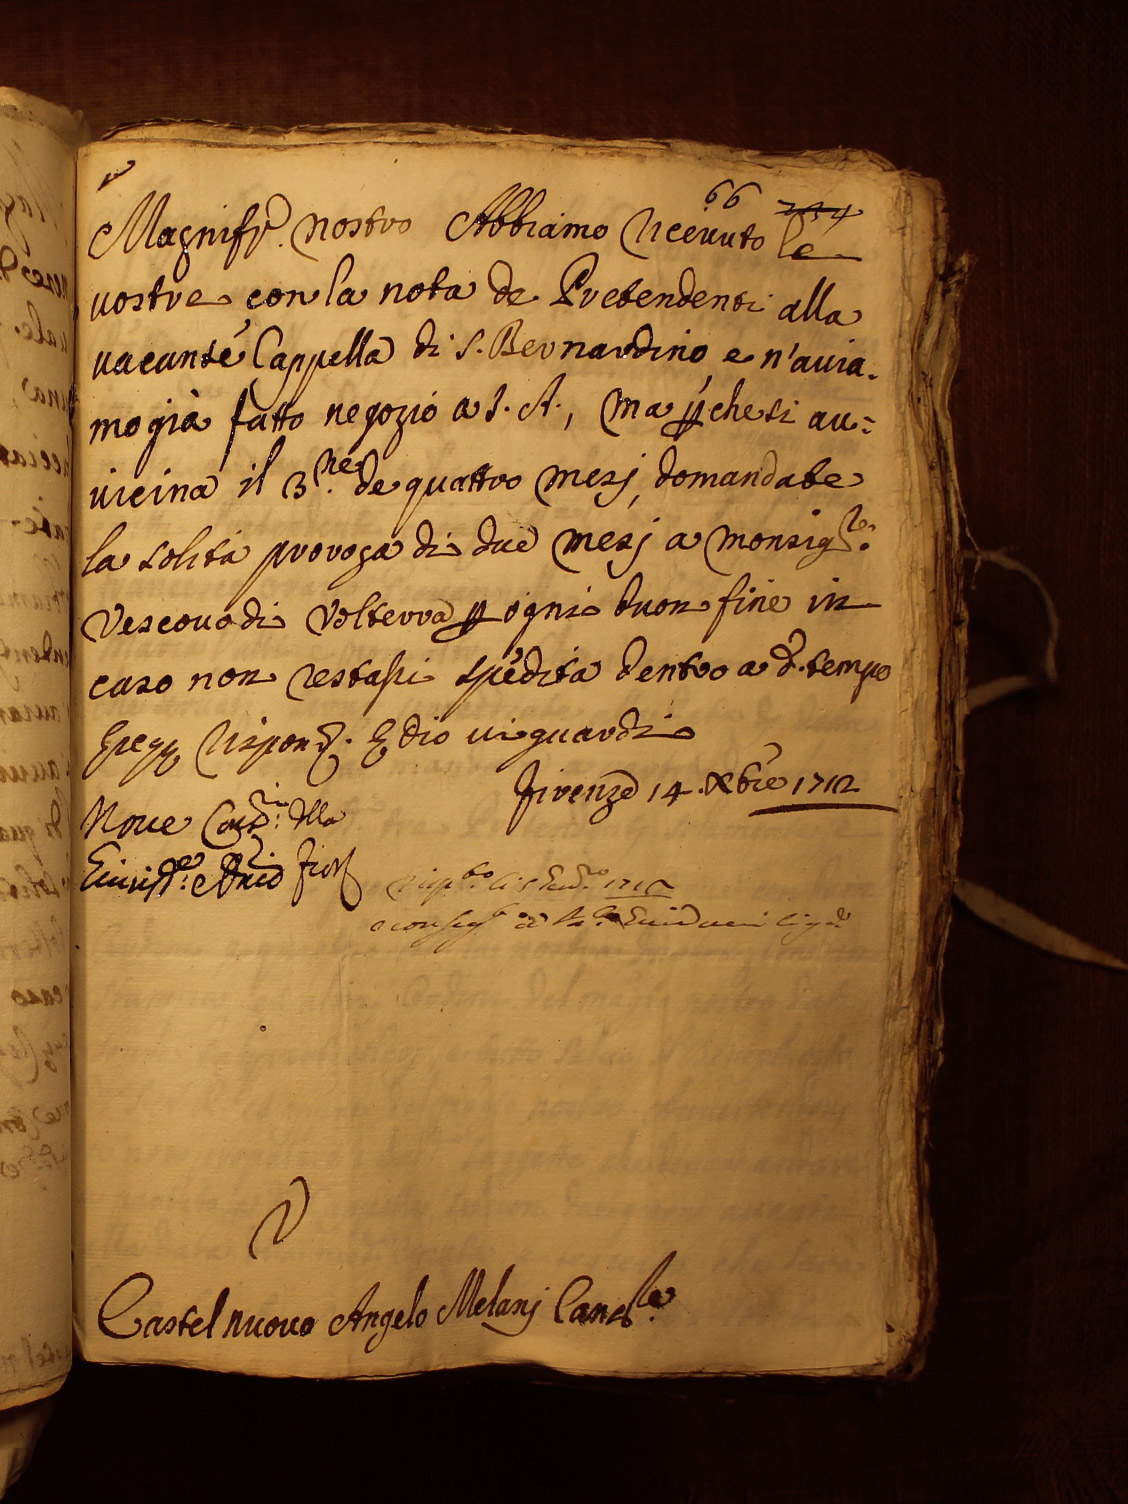 66 244
Magnif.co nostro Abbiamo riceuuto le
uostre con la nota de Pretendenti alla
uacante Cappella di S. Bernardino, e n'auia-
mo già fatto negozio a S. A., ma p che si au=
uicina il 3.ne de quattro mesj, domandate
la solita proroga di due mesj a Monsig.re
Vescouo di Volterra p ogni buon fine in
caso non restassi spedita dentro a d.o tempo
rispond. E Dio ui guardi
Firenze 14. Xbre 1712
Noue Cons.ri della
Giurisd.e e Dnio Fior.
1712
Castel nuouo Angelo Melanj Canc.re